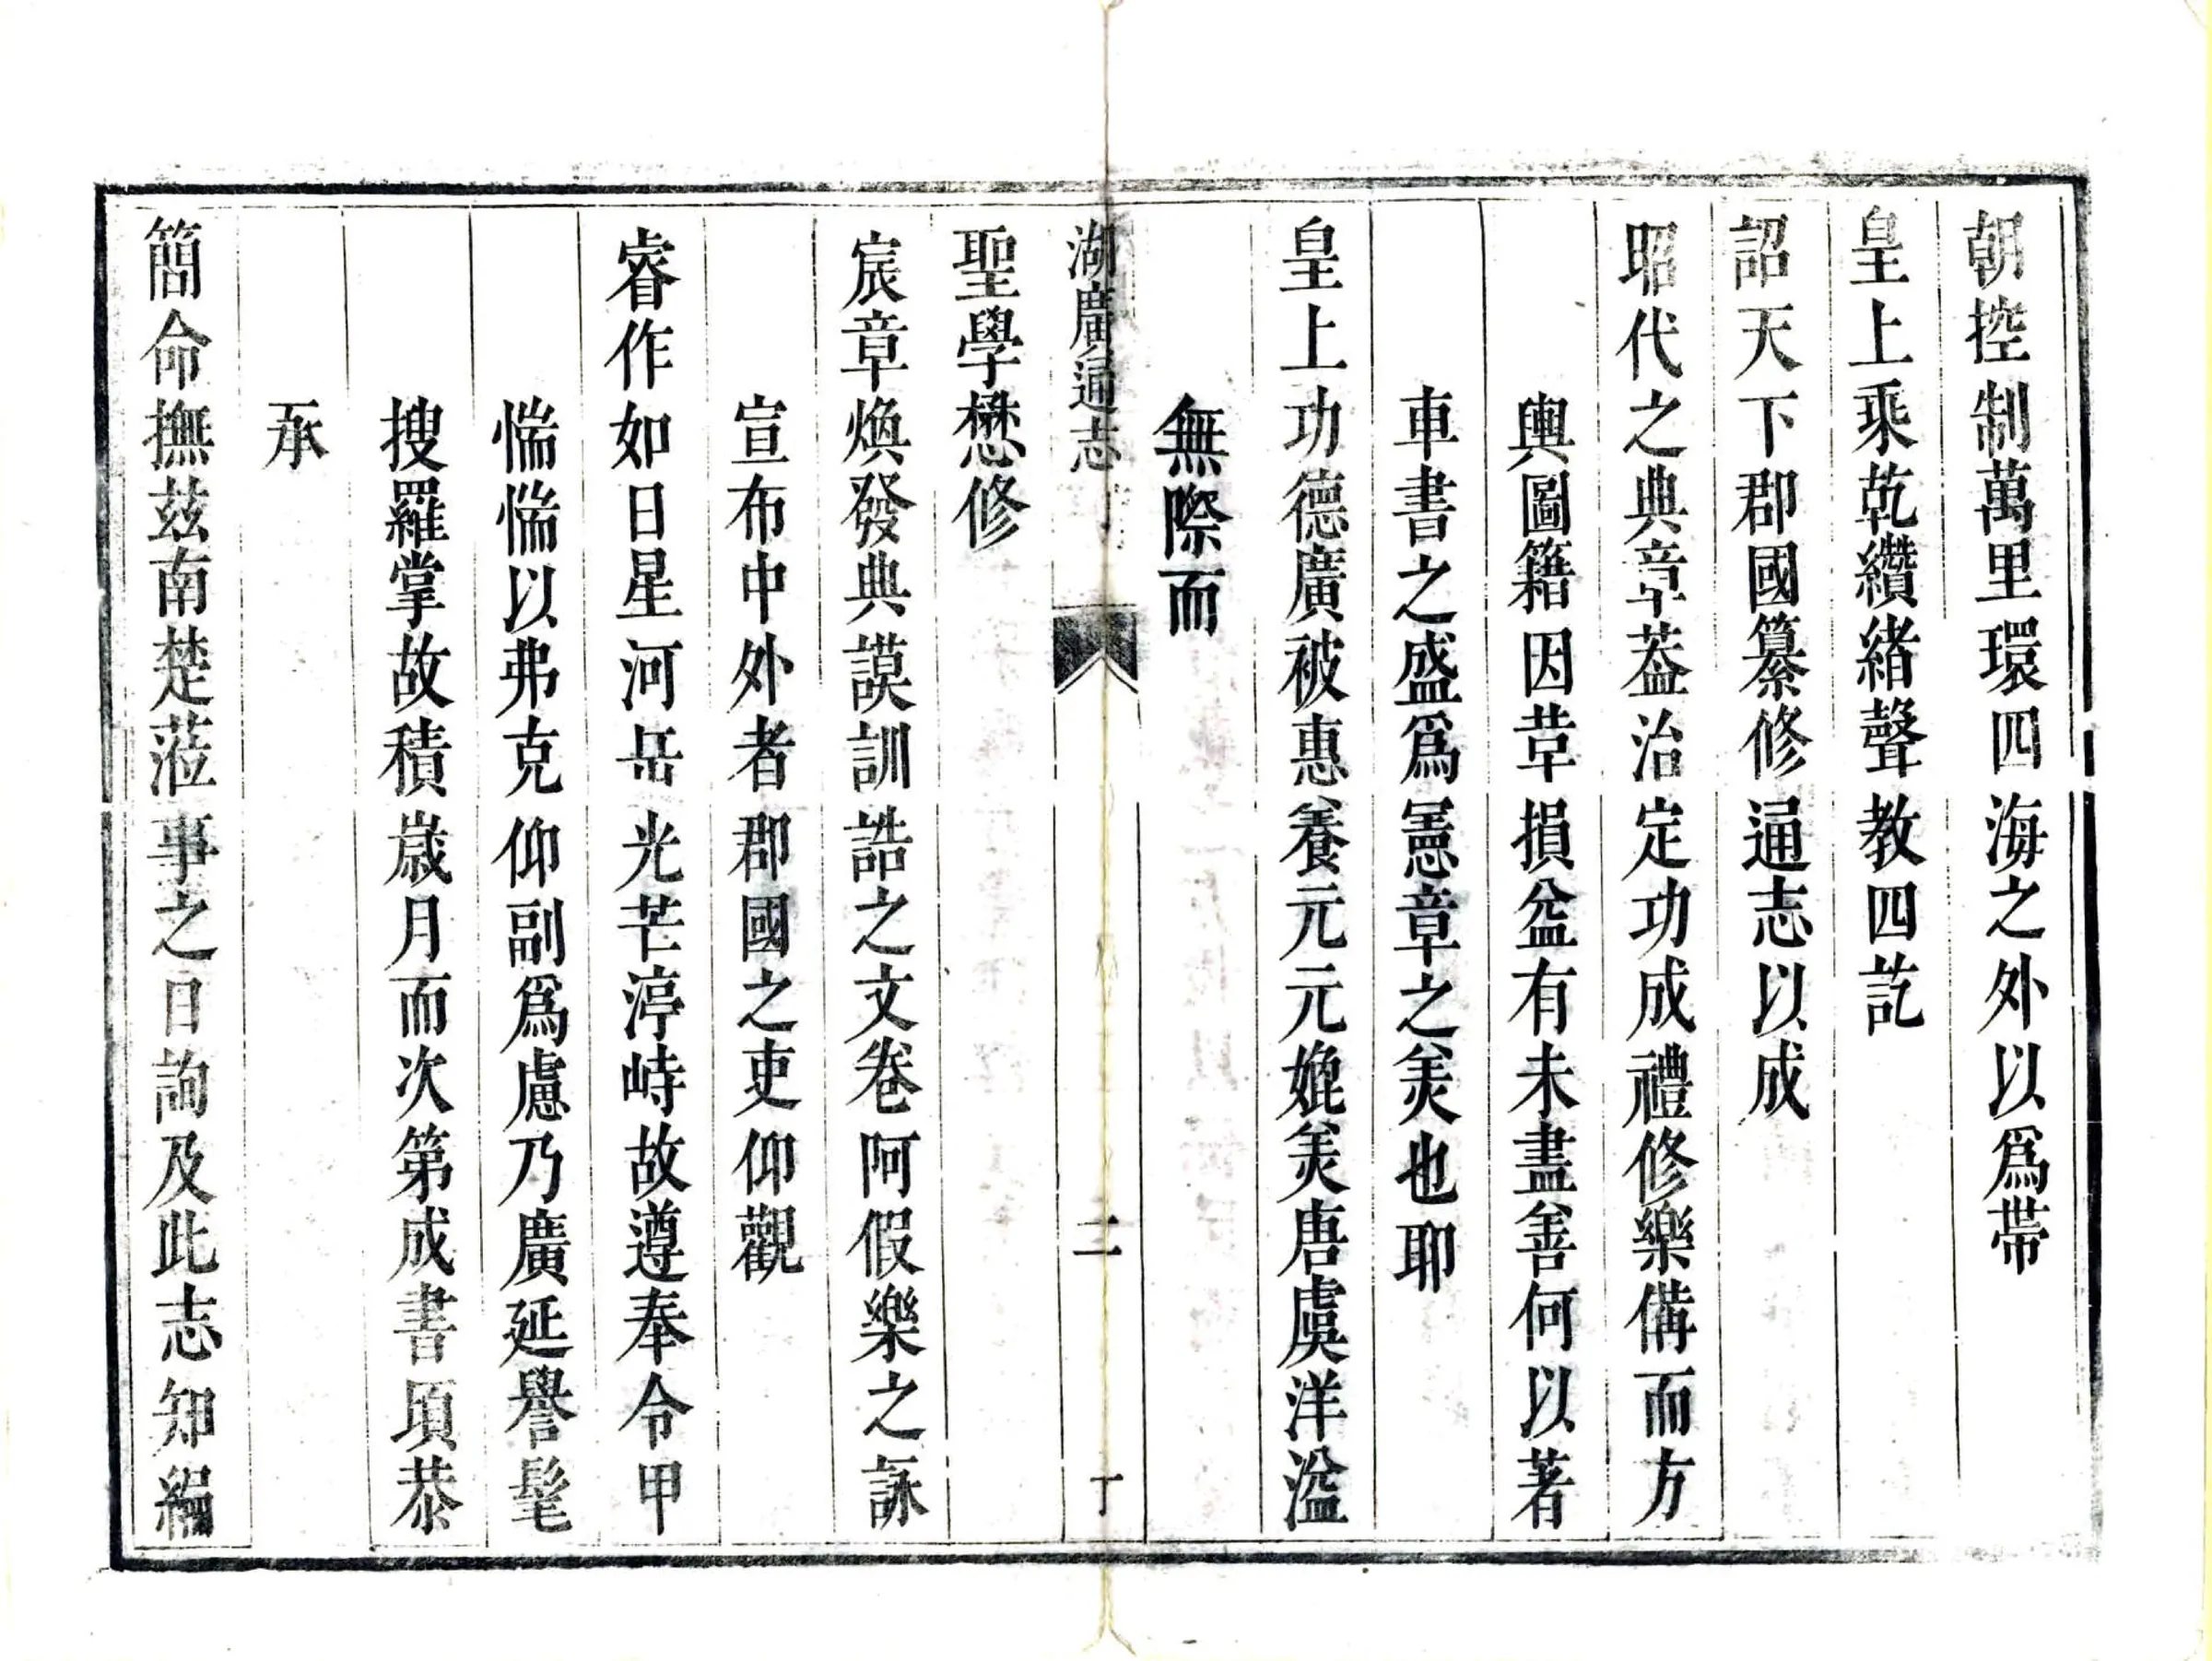 朝控制萬里環四海之外以爲帶
皇上乘乾纘緒聲教四訖
詔天下郡國纂修通志以成
昭代之典章葢治定功成禮修樂備而方
輿圖籍因革損益有未盡善何以著
車書之盛爲憲章之美也耶
皇上功德廣被惠養元元媲美唐虞洋溢
無際而
湖廣通志
二
丁
聖學懋修
宸章煥發典謨訓誥之文卷阿假樂之詠
宣布中外者郡國之吏仰觀
睿作如日星河岳光芒渟峙故遵奉令甲
惴惴以弗克仰副爲慮乃廣延譽髦
搜羅掌故積歲月而次第成書頃恭
承
簡命撫茲南楚蒞事之日詢及此志知編